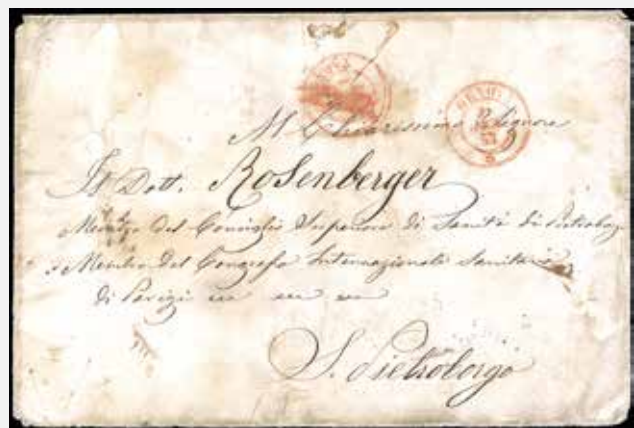 Al Chiarissimo Signore
Il Dott. Rosenberger
Membro del Consiglio Superiore di Sanità di Pietrobo
e Membro del Congresso Internazionale Sanitario
di Parigi
S. Pietroborgo